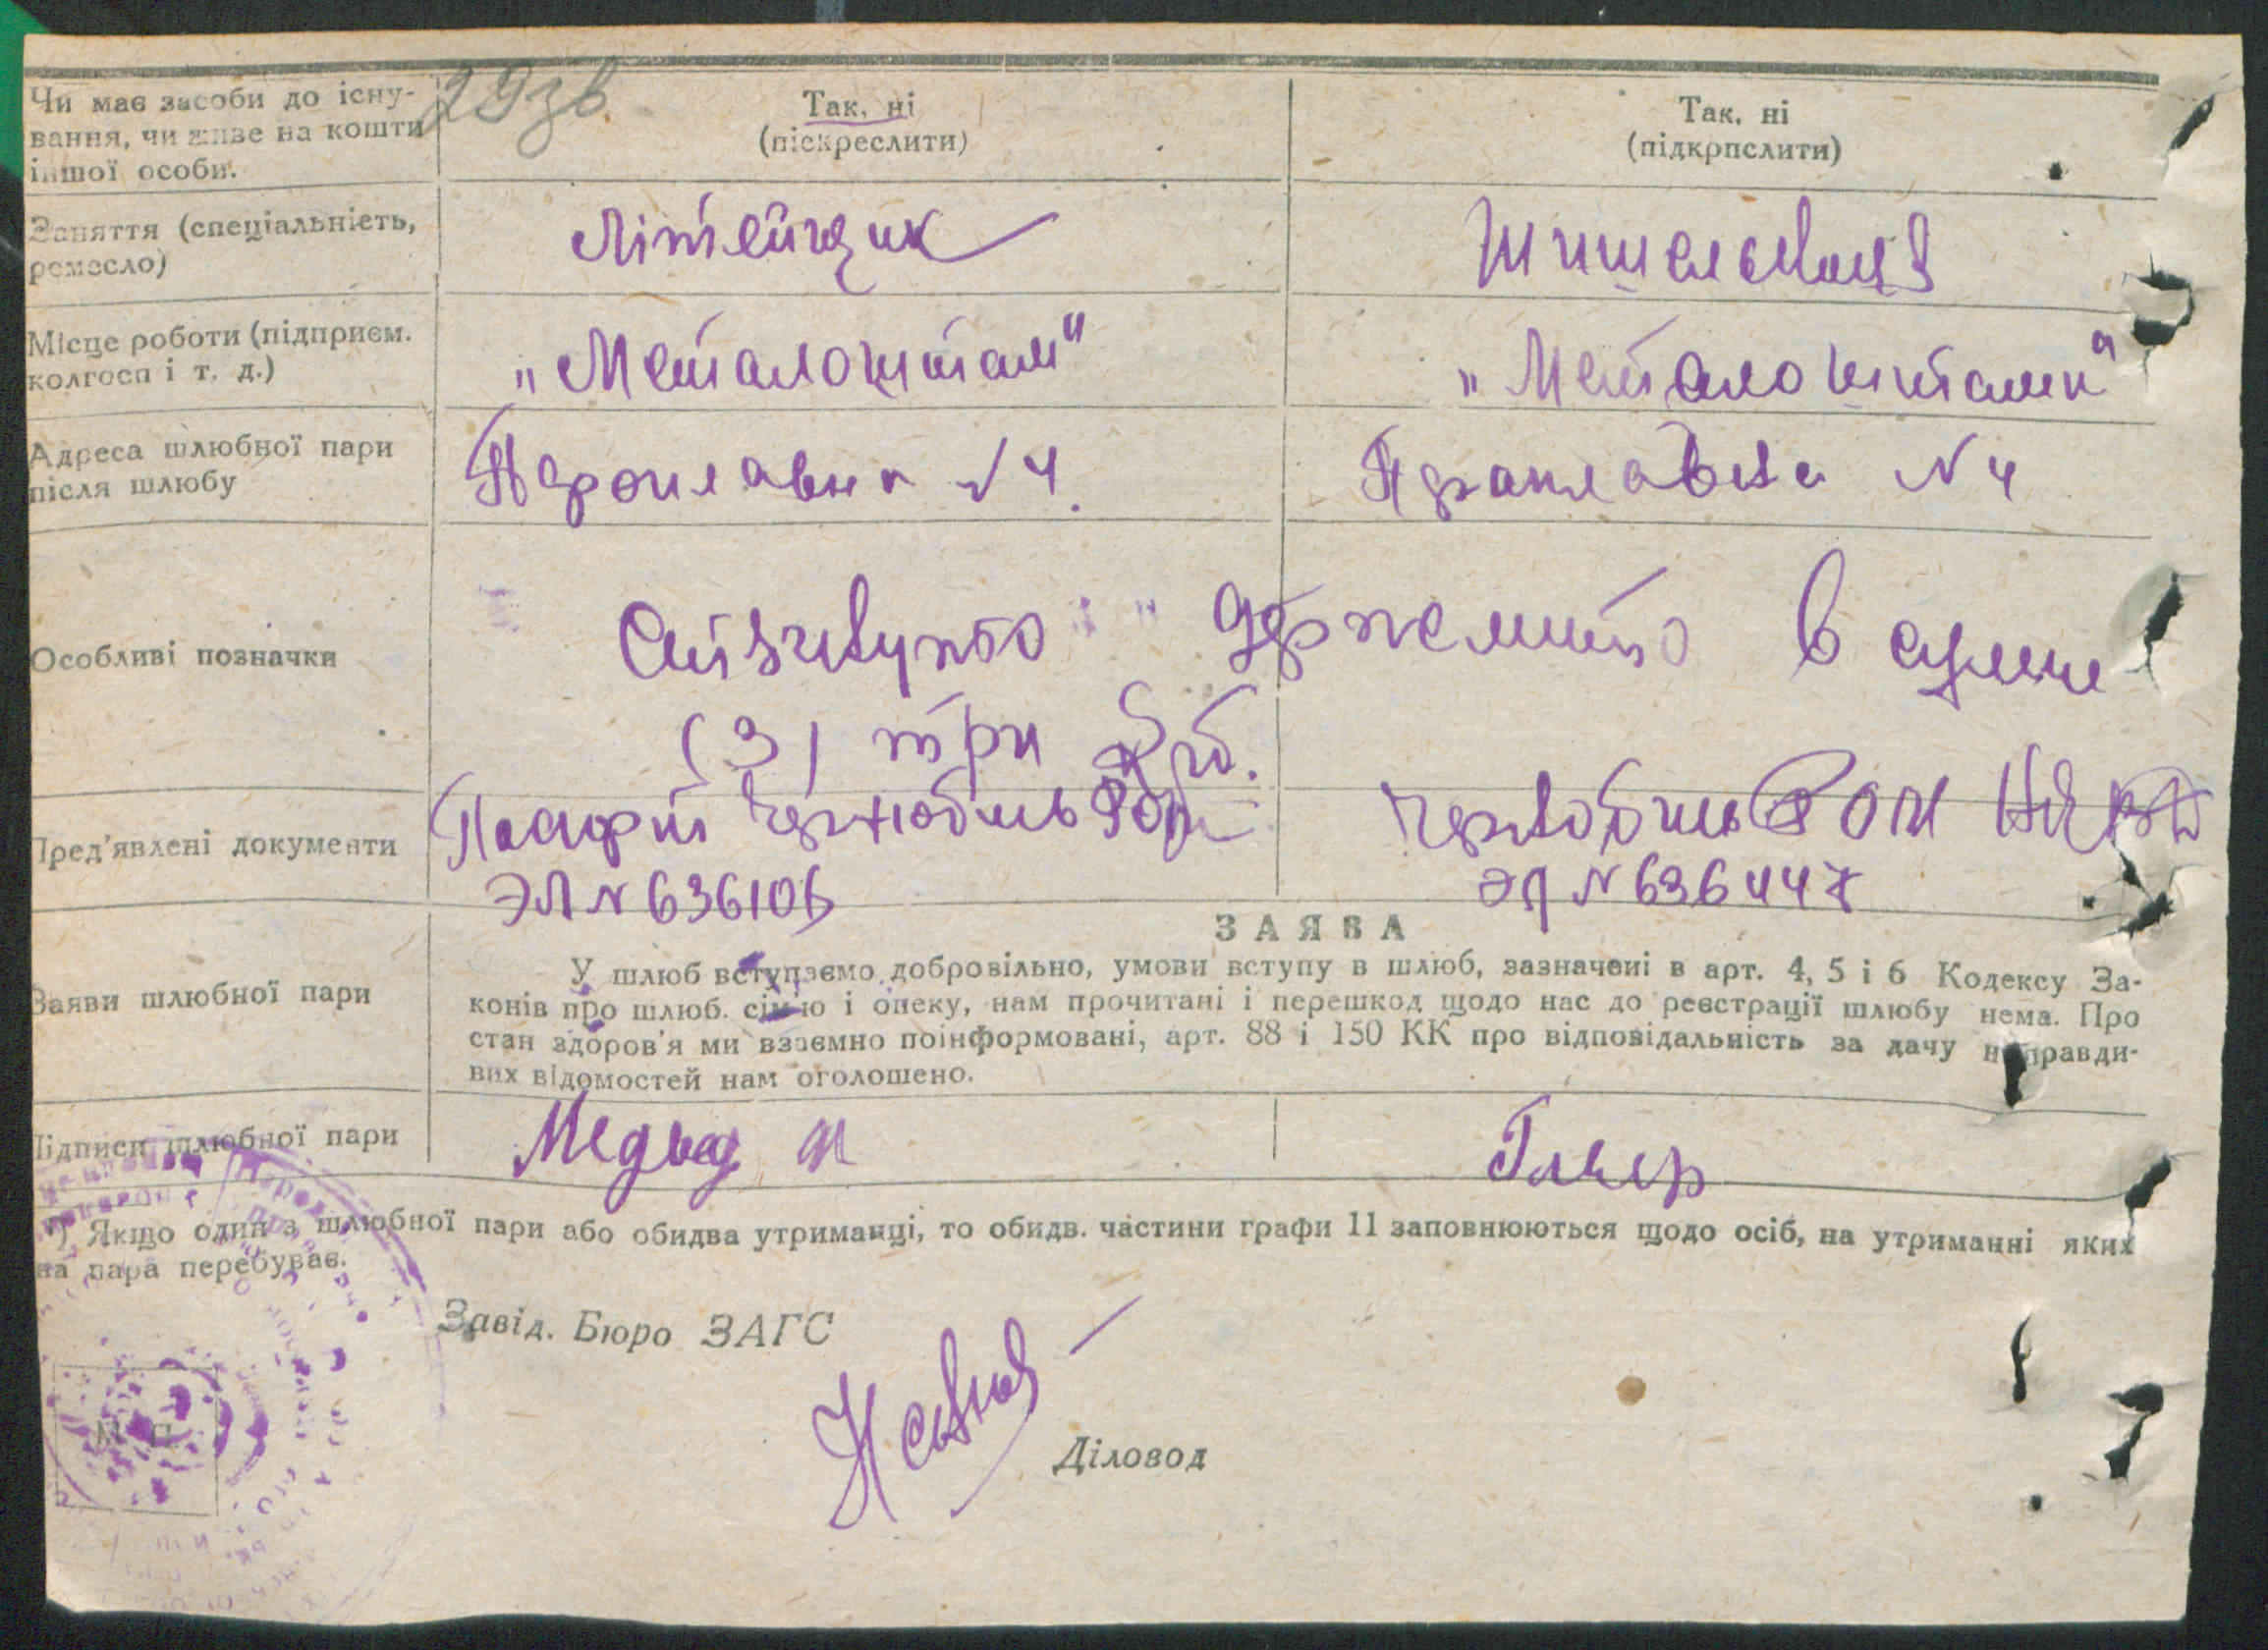 29 зв.
Чи має засоби до існу-
вання, чи живе на кошти
іншої особи.
Так, ні
(піскреслити)
Так, ні
(підкрпслити)
Заняття (спеціальність,
ремесло)
Літейщик
Місце роботи (підприєм.
колгосп і т. д.)
„Металоштам"
„Металоштамп"
Адреса шлюбної пари
після шлюбу
№ 4.
№ 4
Особливі позначки
держмито в сумме
(3) три руб.
Пред'явлені документи
Паспорт
ЭЛ № 636106
РОМ НКВД
ЭЛ № 636447
ЗАЯВА
Заяви шлюбної пари
У шлюб вступаємо добровільно, умови вступу в шлюб, зазначені в арт. 4, 5 і 6 Кодексу За-
конів про шлюб. сім'ю і опеку, нам прочитані і перешкод щодо нас до реєстрації шлюбу нема. Про
стан здоров'я ми взаємно поінформовані, арт. 88 і 150 КК про відповідальність за дачу неправди-
вих відомостей нам оголошено.
Підписи шлюбної пари
Медвед
*) Якщо один з шлюбної пари або обидва утриманці, то обидв. частини графи 11 заповнюються щодо осіб, на утриманні яких
ця пара перебуває.
Завід. Бюро ЗАГС
Діловод
М. П.